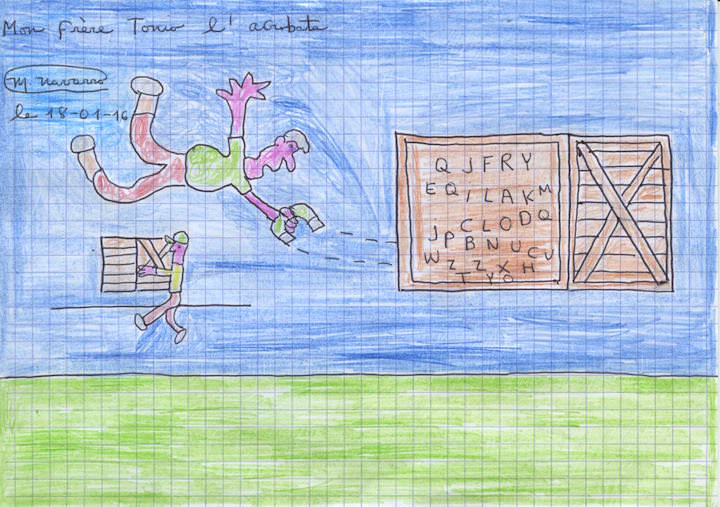 Mon frère Tonio l'acrobate
M. Navarro
le 18-01-16
Q J F R Y
E Q I L A K M
J P C L O D Q
B N U
W Z Z X H C U
T Y O